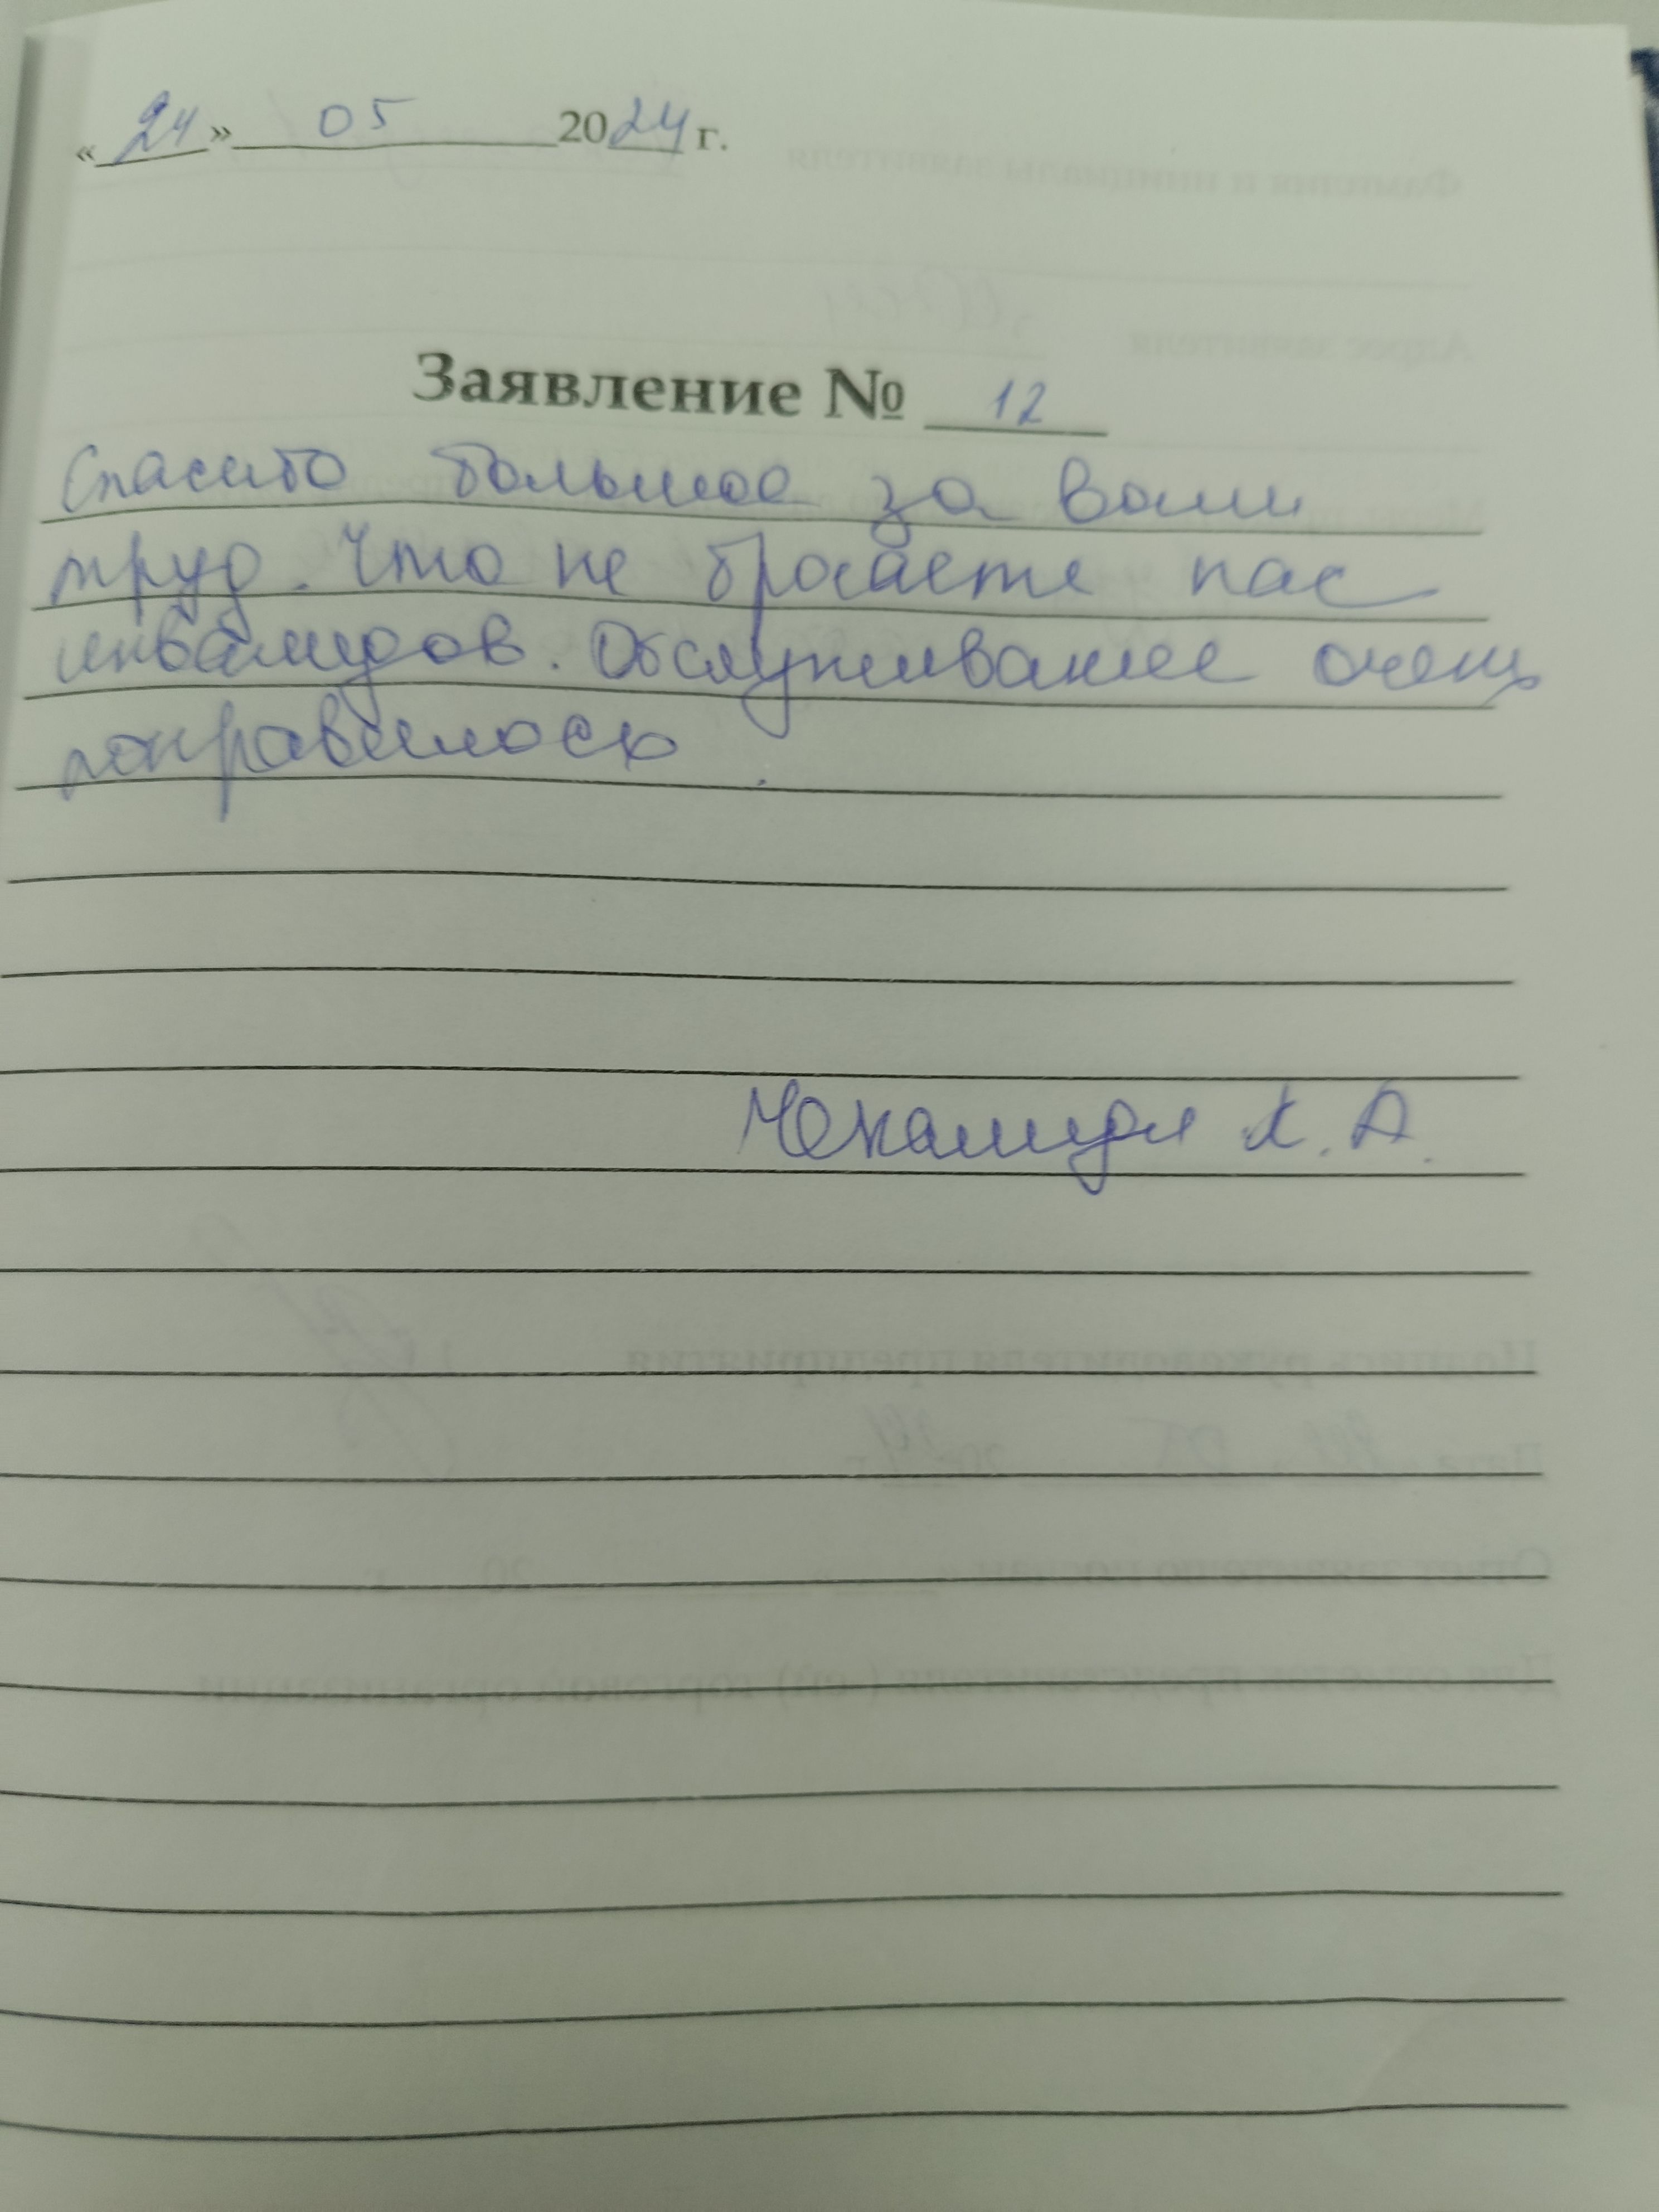 «24» 05 2024 г.
Заявление № 12
Спасибо большое за Ваш
труд. Что не бросаете нас
инвалидов. Обслуживание очень
понравилось.
Х. А.